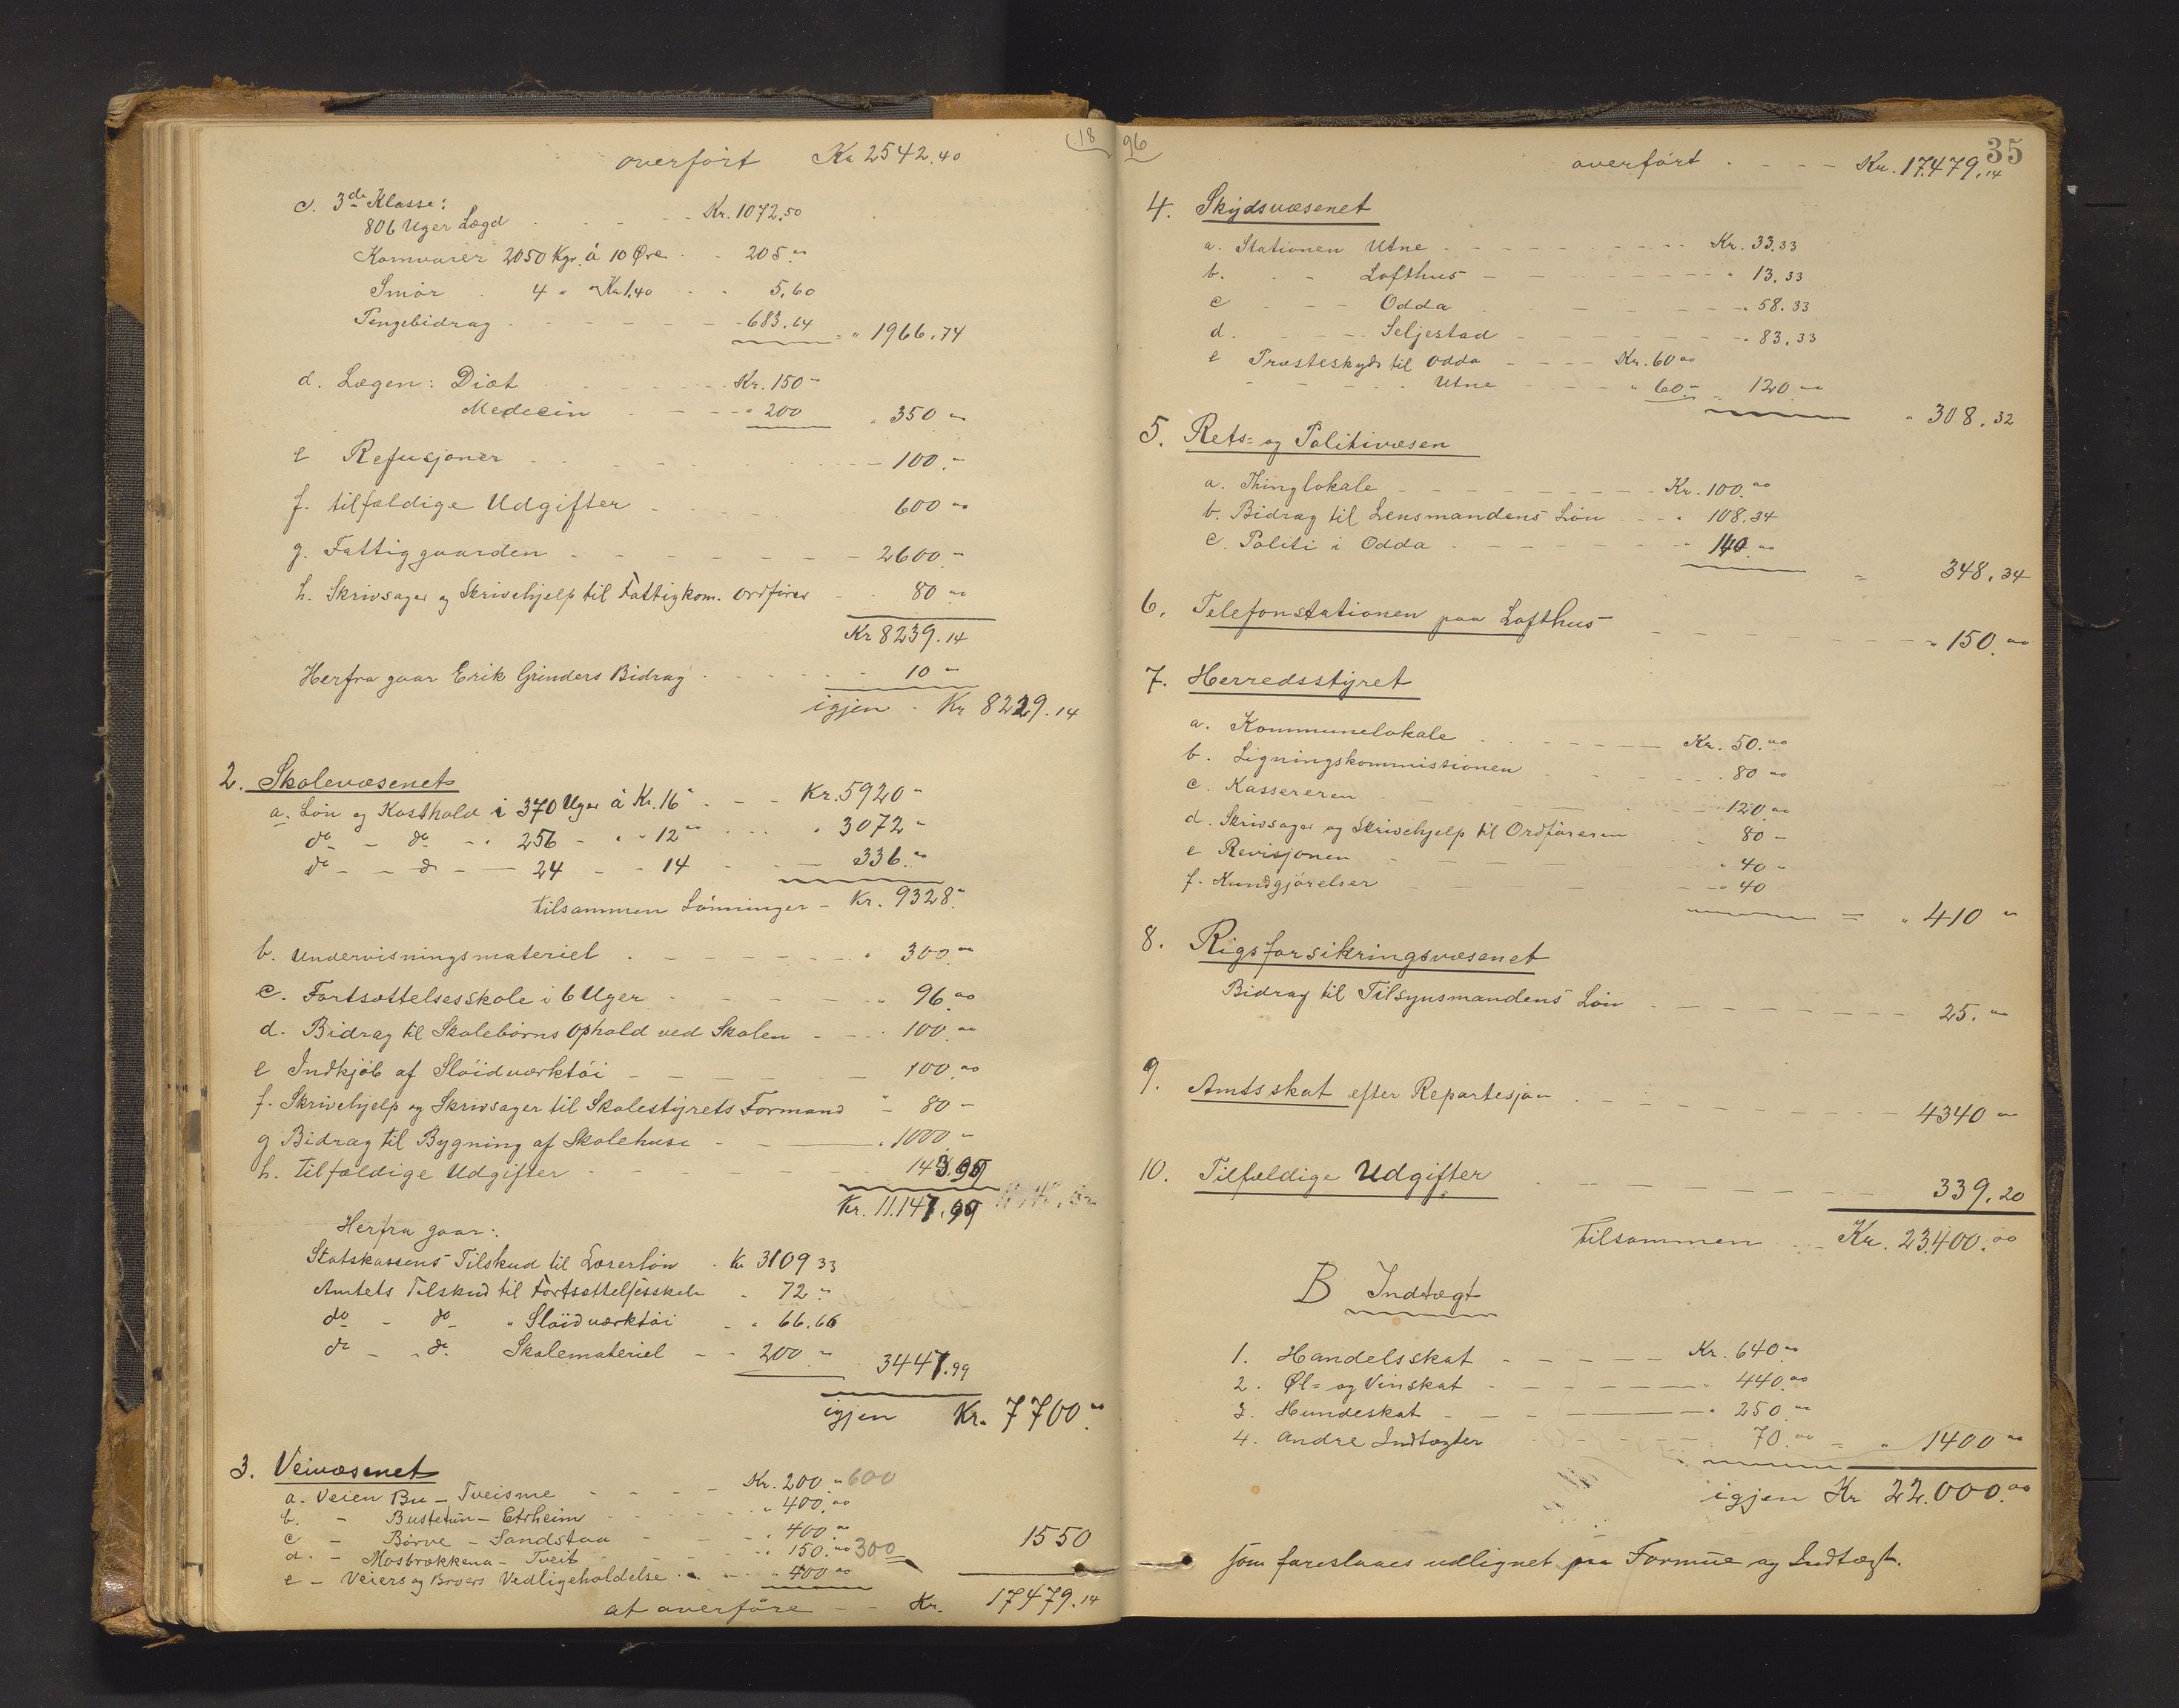 18
overført Kr. 2542.40
c. 3de Klasse:
806 Uger Lægd - - - Kr. 1072.50
Kornvarer 2050 Kgr. á 10 Øre - - 205."
Smør - 4 " " Kr 1,40 - - 5,60
Pengebidrag - - - - - - 683.64 = " 1966.74
d. Lægen: Diæt - - - - Kr. 150 "
Medecin - - - " 200 " 350 "
e Refusjoner - - - - - - - 100.-
f. tilfældige Udgifter - - - - 600 "
g. Fattiggaarden - - - - - - - 2600.-
h. Skrivsager og Skrivehjelp til Fattigkom. Ordfører - - 80 "
Kr 8239.14
Herfra gaar Erik Grinders Bidrag - - - - - 10 "
igjen - Kr 8229.14
2. Skolevæsenet
a. Løn og Kosthold i 370 Uger á Kr. 16 " - - - Kr. 5920 "
do - do - " 256 - " " 12 " - - - " 3072 "
do - - do - - 24 - - 14 - - - 336."
tilsammen Lønninger - Kr. 9328."
b. Undervisningsmateriel - - - - - - " 300."
c. Fortsættelsesskole i 6 Uger - - - - - " 96.00
d. Bidrag til Skolebørns Ophold ved Skolen - - - 100."
e Indkjøb af Sløidværktøi - - - - - 100.00
f. Skrivehjelp og Skrivsager til Skolestyrets Formand " - 80 -
g Bidrag til Bygning af Skolehuse - - - " 1000 "
h. Tilfældige Udgifter - - - - - - 143.99
Kr. 11.147.99
Herfra gaar:
Statskassens Tilskud til Lærerløn - Kr 3109 33
Amtets Tilskud til Fortsættelsesskole " 72 "
do - do " Sløidværktøi - " 66.66
do - " do. Skolemateriel - - 200 " 3447.99
igjen Kr. 7700."
3. Veivæsenet
a. Veien Bu - Tveisme - - - - Kr. 200 " 600
b. - Bustetun - Etrheim - - - - " 400."
c - Børve - Sandstaa - - - " 400."
d. - Mosbrækkena - Tveit - - - " 150." 300 1550
e - Veiers og Broers Vedligeholdelse - - - " 400 "
at overføre - - Kr. 17479.14
96
35
overført - - - - Kr. 17.479.14
4. Skydsvæsenet
a. Stationen Utne - - - - - - - - Kr. 33.33
b. - - Lofthus - - - - - - - " 13.33
c - - - Odda - - - - - - " 58.33
d. - - - Seljestad - - - - - - " 83.33
e Præsteskyds til Odda - - - - Kr. 60 "
- - - - Utne - - - " 60 " = 120 " " 308.32
5. Rets- og Politivæsen
a. Thinglokale - - - - - - - - Kr. 100."
b. Bidrag til Lensmandens Løn - - - " 108.34
c. Politi i Odda - - - - - - " 140." = 348.34
6. Telefonstationen paa Lofthus - - - - - - - " 150."
7. Herredsstyret
a. Kommunelokale - - - - - Kr. 50."
b. Ligningskommissionen - - - - - 80 "
c. Kassereren - - - - - - 120."
d. Skrivsager og Skrivehjelp til Ordføreren - - 80 -
e Revisjonen - - - - - - " 40 -
f. Kundgjørelser - - - - - - " 40 = " 410 "
8. Rigsforsikringsvæsenet
Bidrag til Tilsynsmandens Løn - - - - - - - 25."
9. Amtsskat efter Repartesjon - - - - - - - - 4340 "
10. Tilfældige Udgifter - - - - - - - - 339.20
Tilsammen - - Kr. 23.400.00
B Indtægt
1. Handelsskat - - - - - Kr. 640 "
2. Øl- og Vinskat - - - - - " 440."
3. Hundeskat - - - - - " 250 "
4. Andre Indtægter - - - - - 70." = " 1400 "
igjen Kr 22.000.00
som foreslaaes udlignet paa Formue og Indtægt.